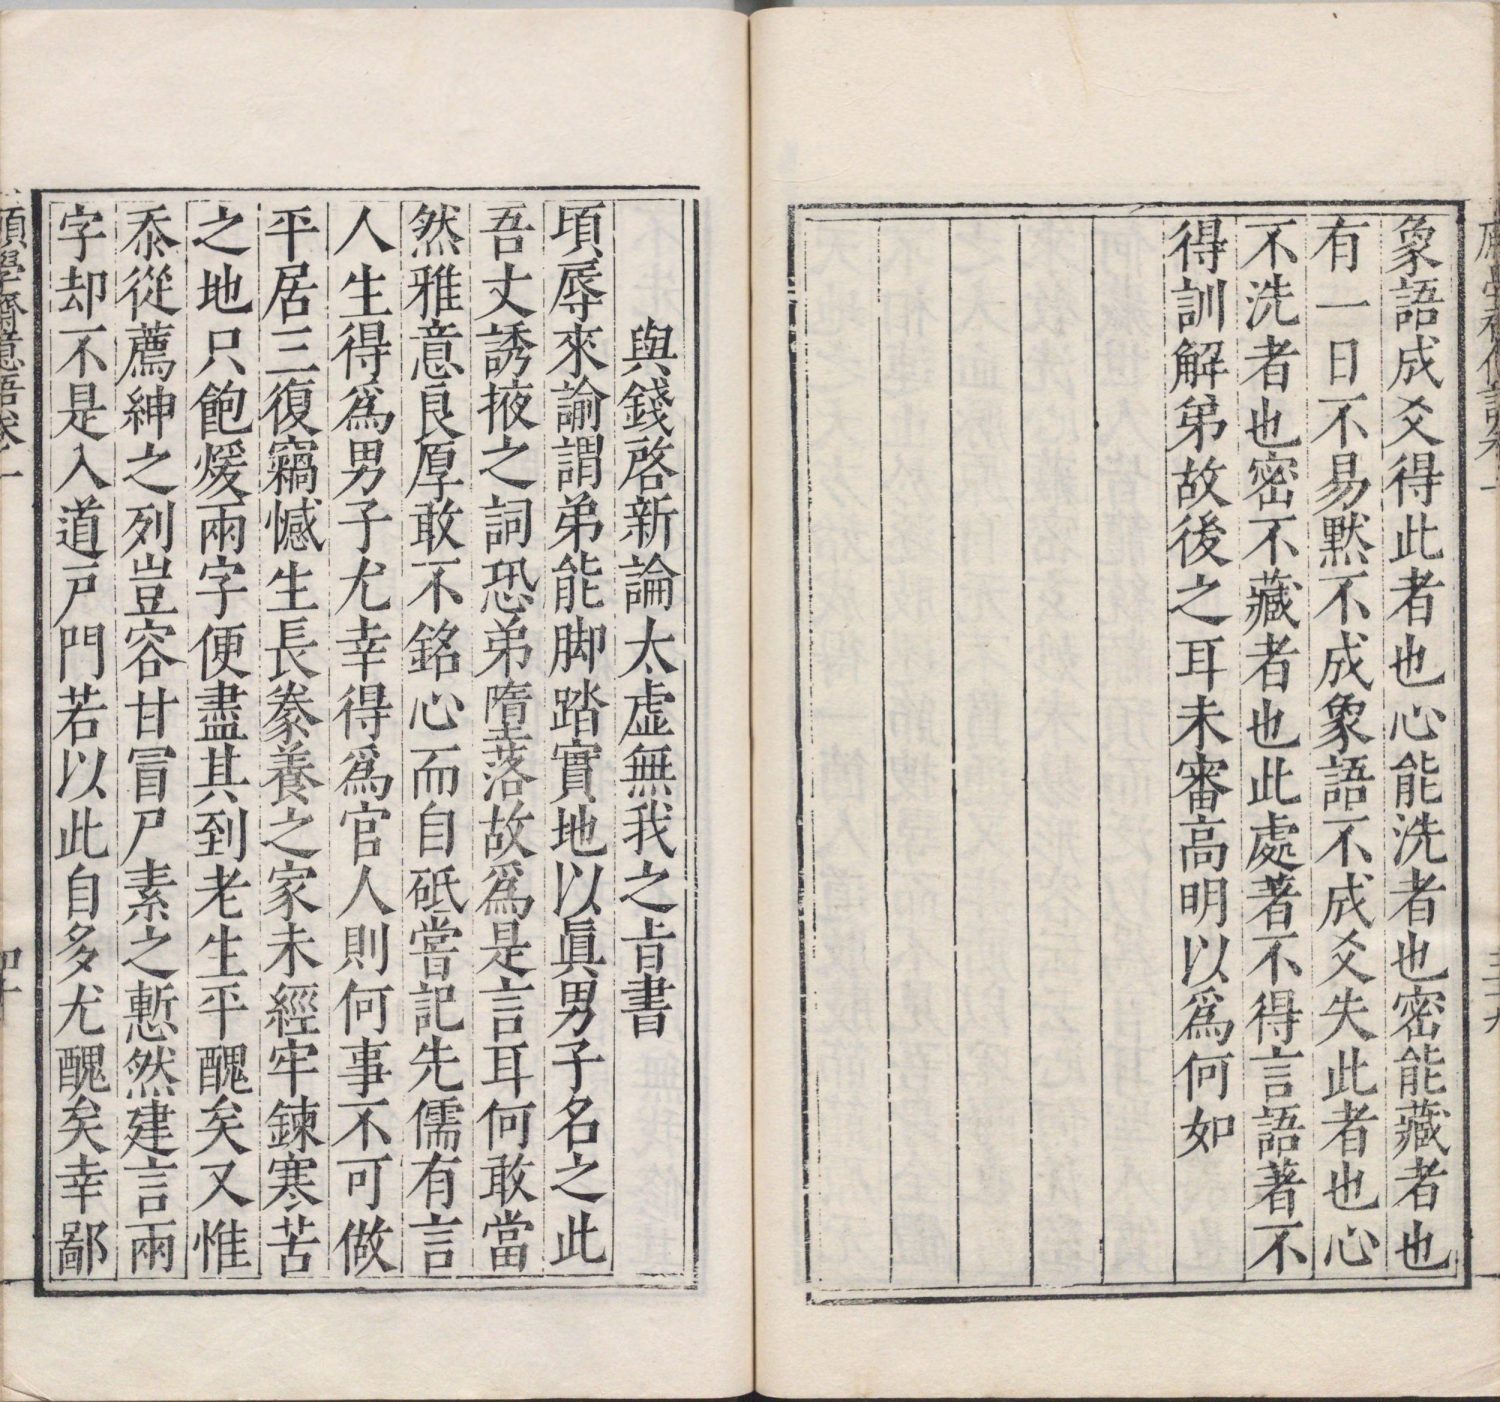 象語成爻得此者也心能洗者也密能藏者也
有一日不易黙不成象語不成爻失此者也心
不洗者也密不藏者也此處著不得言語著不
得訓解弟故後之耳未審高明以爲何如
與錢啓新論太虛無我之旨書
頃辱來諭謂弟能脚踏實地以眞男子名之此
吾丈誘掖之詞恐弟墮落故爲是言耳何敢當
然雅意良厚敢不銘心而自砥嘗記先儒有言
人生得爲男子尤幸得爲官人則何事不可做
平居三復竊憾生長豢養之家未經牢鍊寒苦
之地只飽煖兩字便盡其到老生平醜矣又惟
忝從薦紳之列豈容甘冒尸素之慙然建言兩
字却不是入道戸門若以此自多尤醜矣幸鄙